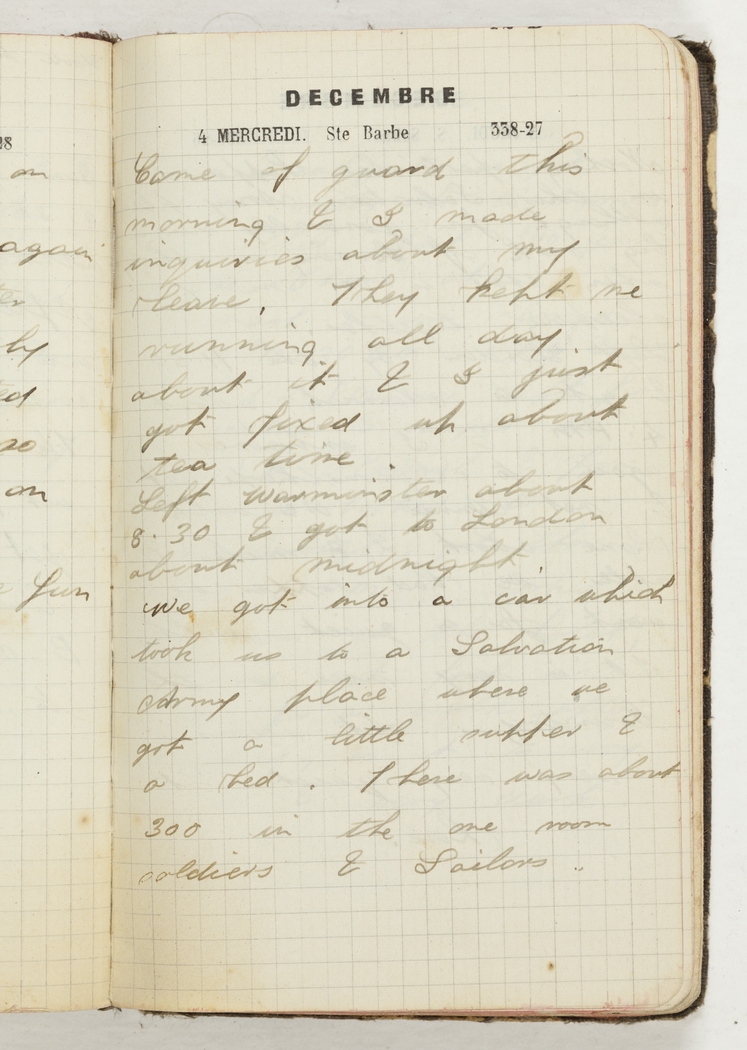 DECEMBRE
4 MERCREDI. Ste Barbe 338-27
Came of guard this
morning & I made
inquiries about my
leave. They kept me
running all day
about it & I just
got fixed up about
tea time
Left Warminster about
8.30 & got to London
about midnight.
we got into a car which
took us to a Salvation
Army place where we
got a little supper &
a bed. There was about
300 in the one room
soldiers & Sailors.
28
on
again
by
ed
on
fun